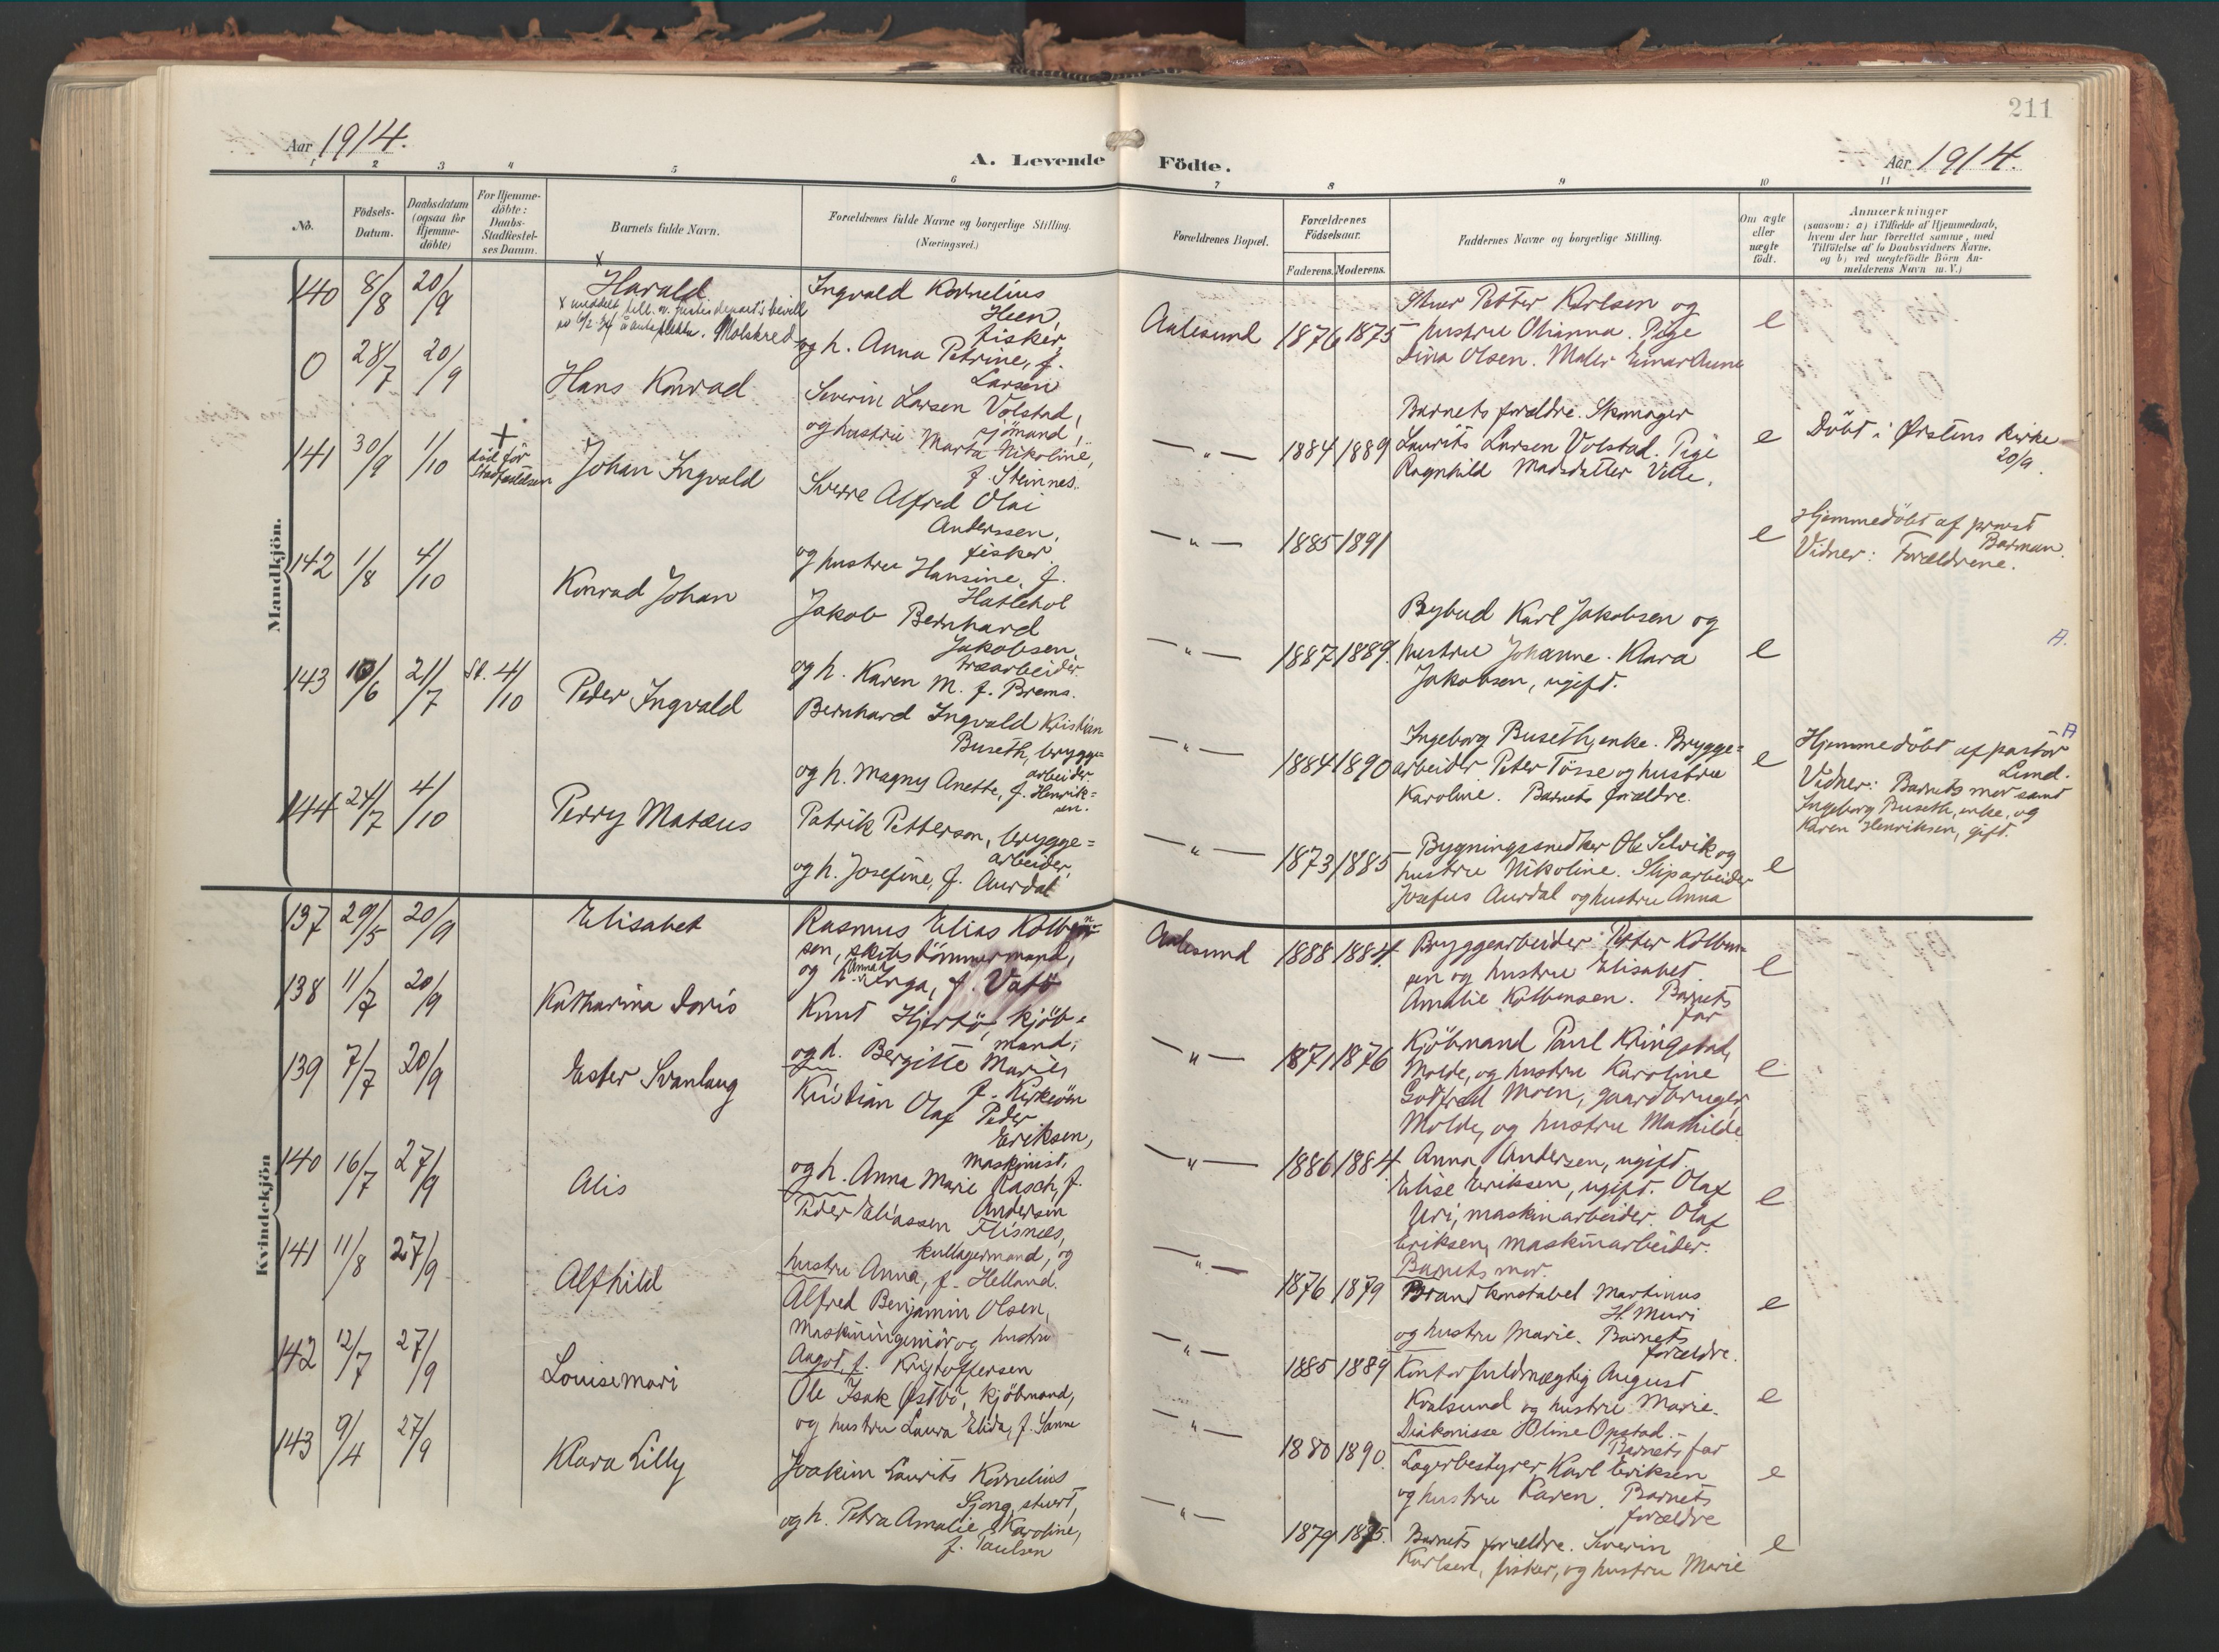 211
Aar 1914.
A. Levende Födte.
Aar 1914.
1 2 3 4 5 6 7 8 9 10 11
No.
Födsels-
Datum.
Daabsdatum
(ogsaa for
Hjemme-
döbte)
For Hjemme-
döbte:
Daabs-
Stadfæstel-
ses Datum.
Barnets fulde Navn.
Forældrenes fulde Navne og borgerlige Stilling.
(Næringsvei.)
Forældrenes Bopæl.
Forældrenes
Födselsaar.
Faderens. Moderens.
Faddernes Navne og borgerlige Stilling.
Om ægte
eller
uægte
födt.
Anmærkninger
(saasom: a) i Tilfælde af Hjemmedaab,
hvem der har forrettet samme, med
Tilföielse af to Daabsvidners Navne,
og b) ved uægtefödte Börn An-
melderens Navn m. V.)
Mandkjön.
140 8/8 20/9
x
Harald
Ingvald Kornelius
Heen,
fisker,
og h. Anna Petrine, f.
Larsen
Aalesund 1876 1875
Petter Karlsen og
hustru Olianna. Pige
Lina Olsen. Maler Einar Aune
e
0 28/7 20/9
Hans Konrad
Severin Larsen Volstad,
sjömand,
og hustru Marta Nikoline,
f. Steinnes.
— " — 1884 1889
Barnets forældre. Skomager
Laurits Larsen Volstad. Pige
Ragnhild Madsdatter
e
Döbt i Ørstens kirke
20/9.
141 30/9 1/10
†
död för
Stadfæstelsen
Johan Ingvald
Sverre Alfred Olai
Anderssen,
fisker
og hustru Hansine, f.
Hatlehol
— " — 1885 1891
e
Hjemmedöbt af provst
Barman.
Vidner: Forældrene.
142 1/8 4/10
Konrad Johan
Jakob Bernhard
Jakobsen,
træarbeider.
og h. Karen M. f. Brems.
— " — 1887 1889.
Bybud Karl Jakobsen og
hustru Johanne. Klara
Jakobsen, ugift.
e
A.
143 10/6 21/7 St. 4/10
Peder Ingvald
Bernhard Ingvald Kristian
Buseth, brygge=
arbeider.
og h. Magny Anette, f. Henrik=
sen.
— " — 1884 1890
Ingeborg Buseth, enke. Brygge=
arbeider Peter Tösse og hustru
Karoline. Barnets forældre.
e
A
Hjemmedöbt af pastor
Lund.
Vidner: Barnets mor samt
Ingeborg Buseth, enke, og
Karen Henriksen, gift.
144 24/7 4/10
Perry Matæus
Patrik Petterson, brygge=
arbeider,
og h. Josefine, f. Aurdal
— " — 1873 1885
Bygningssnedker Ole Selvik og
hustru Nikoline. Sliparbeider
Josefus Aurdal og hustru Anna
e
Kvindekjön
137 29/5 20/9
Elisabet
Rasmus Elias Kolben-
sen, skibstömmermand,
og h. Anna Inga, f. Vatö
Aalesund 1888 1884.
Bryggearbeider Petter Kolben-
sen og hustru Elisabet.
Amalie Kolbensen. Barnets
far
e
138 11/7 20/9
Katharina Doris
Knut Hjertö, kjöb=
mand,
og h. Bergitte Marie,
f. Kirkeöen
— " — 1871 1876
Kjöbmand Paul Kringstad,
Molde, og hustru Karoline
Gotfred Moen, gaardbruger,
Molde, og hustru Mathilde
e
139 7/7 20/9
Ester Svanlaug
Kristian Olaf Peder
Eriksen,
maskinist,
og h. Anna Marie Rasch, f.
Andersen
— " — 1886 1884.
Anna Andersen, ugift.
Elise Eriksen, ugift. Olaf
Uri, maskinarbeider. Olaf
Eriksen, maskinarbeider.
Barnets mor.
e
140 16/7 27/9
Alis
Peder Eliassen Flisnes,
kullagermand, og
hustru Anna, f. Helland.
— " — 1876 1879
Brandkonstabel Martinus
H. Muri
og hustru Marie. Barnets
forældre.
e
141 11/8 27/9
Alfhild
Alfred Benjamin Olsen,
maskiningeniör og hustru
Aagot, f. Kristoffersen
— " — 1885 1889
Kontorfuldmægtig August
Kvalsund og hustru Marie.
Diakonisse Oline Opstad. –
Barnets far
e
142 12/7 27/9
Louise Mari
Ole Isak Østbö, kjöbmand,
og hustru Laura Elida, f. Sanne
— " — 1880 1890.
Lagerbestyrer Karl Eriksen
og hustru Karen. Barnets
forældre
e
143 9/4 27/9
Klara Lilly
Joakim Laurits Kornelius
Sjong, stuert,
og h. Petra Amalie Karoline,
f. Paulsen
— " — 1879 1885.
Barnets forældre. Severin
Karlsen, fisker, og hustru Marie
e